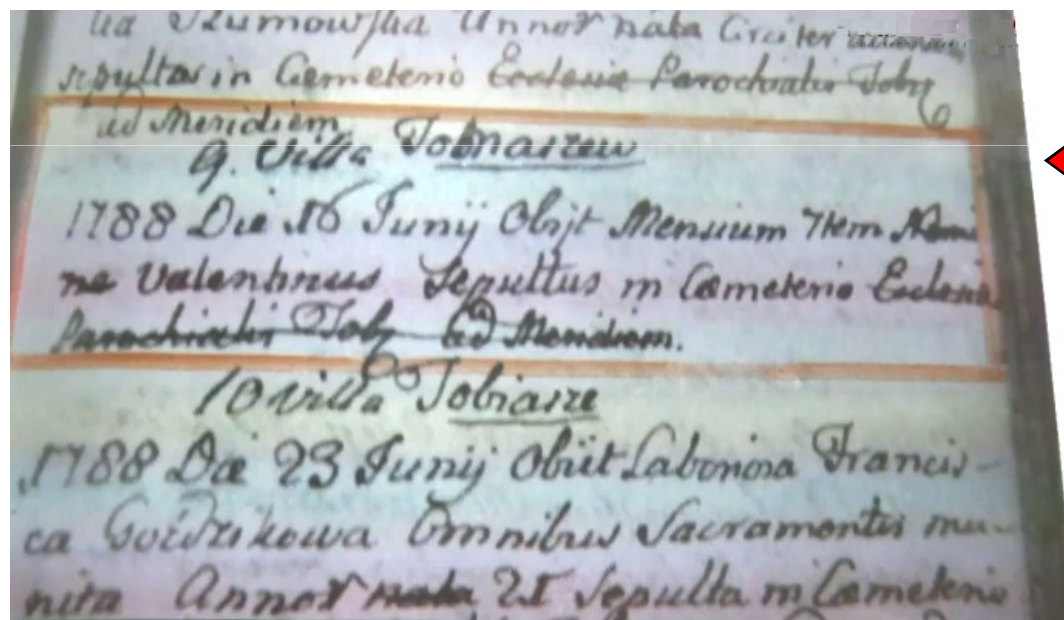 Szumowska Annor nata Circiter
sepulta in Cæmeterio Ecclesiæ Parochialis Tob
ad Meridiem
9. Villa Tomaszew
1788 Die 16 Junij Obijt Mensium 7tem Nomi
ne Valentinus Sepultus in Cæmeterio Ecclesiæ
Parochialis Tob ad Meridiem.
10 Villa Tobiasze
1788 Die 23 Junij Obiit Laboriosa Francis-
ca Omnibus Sacramentis mu-
nita Annor nata 25 Sepulta in Cæmeterio